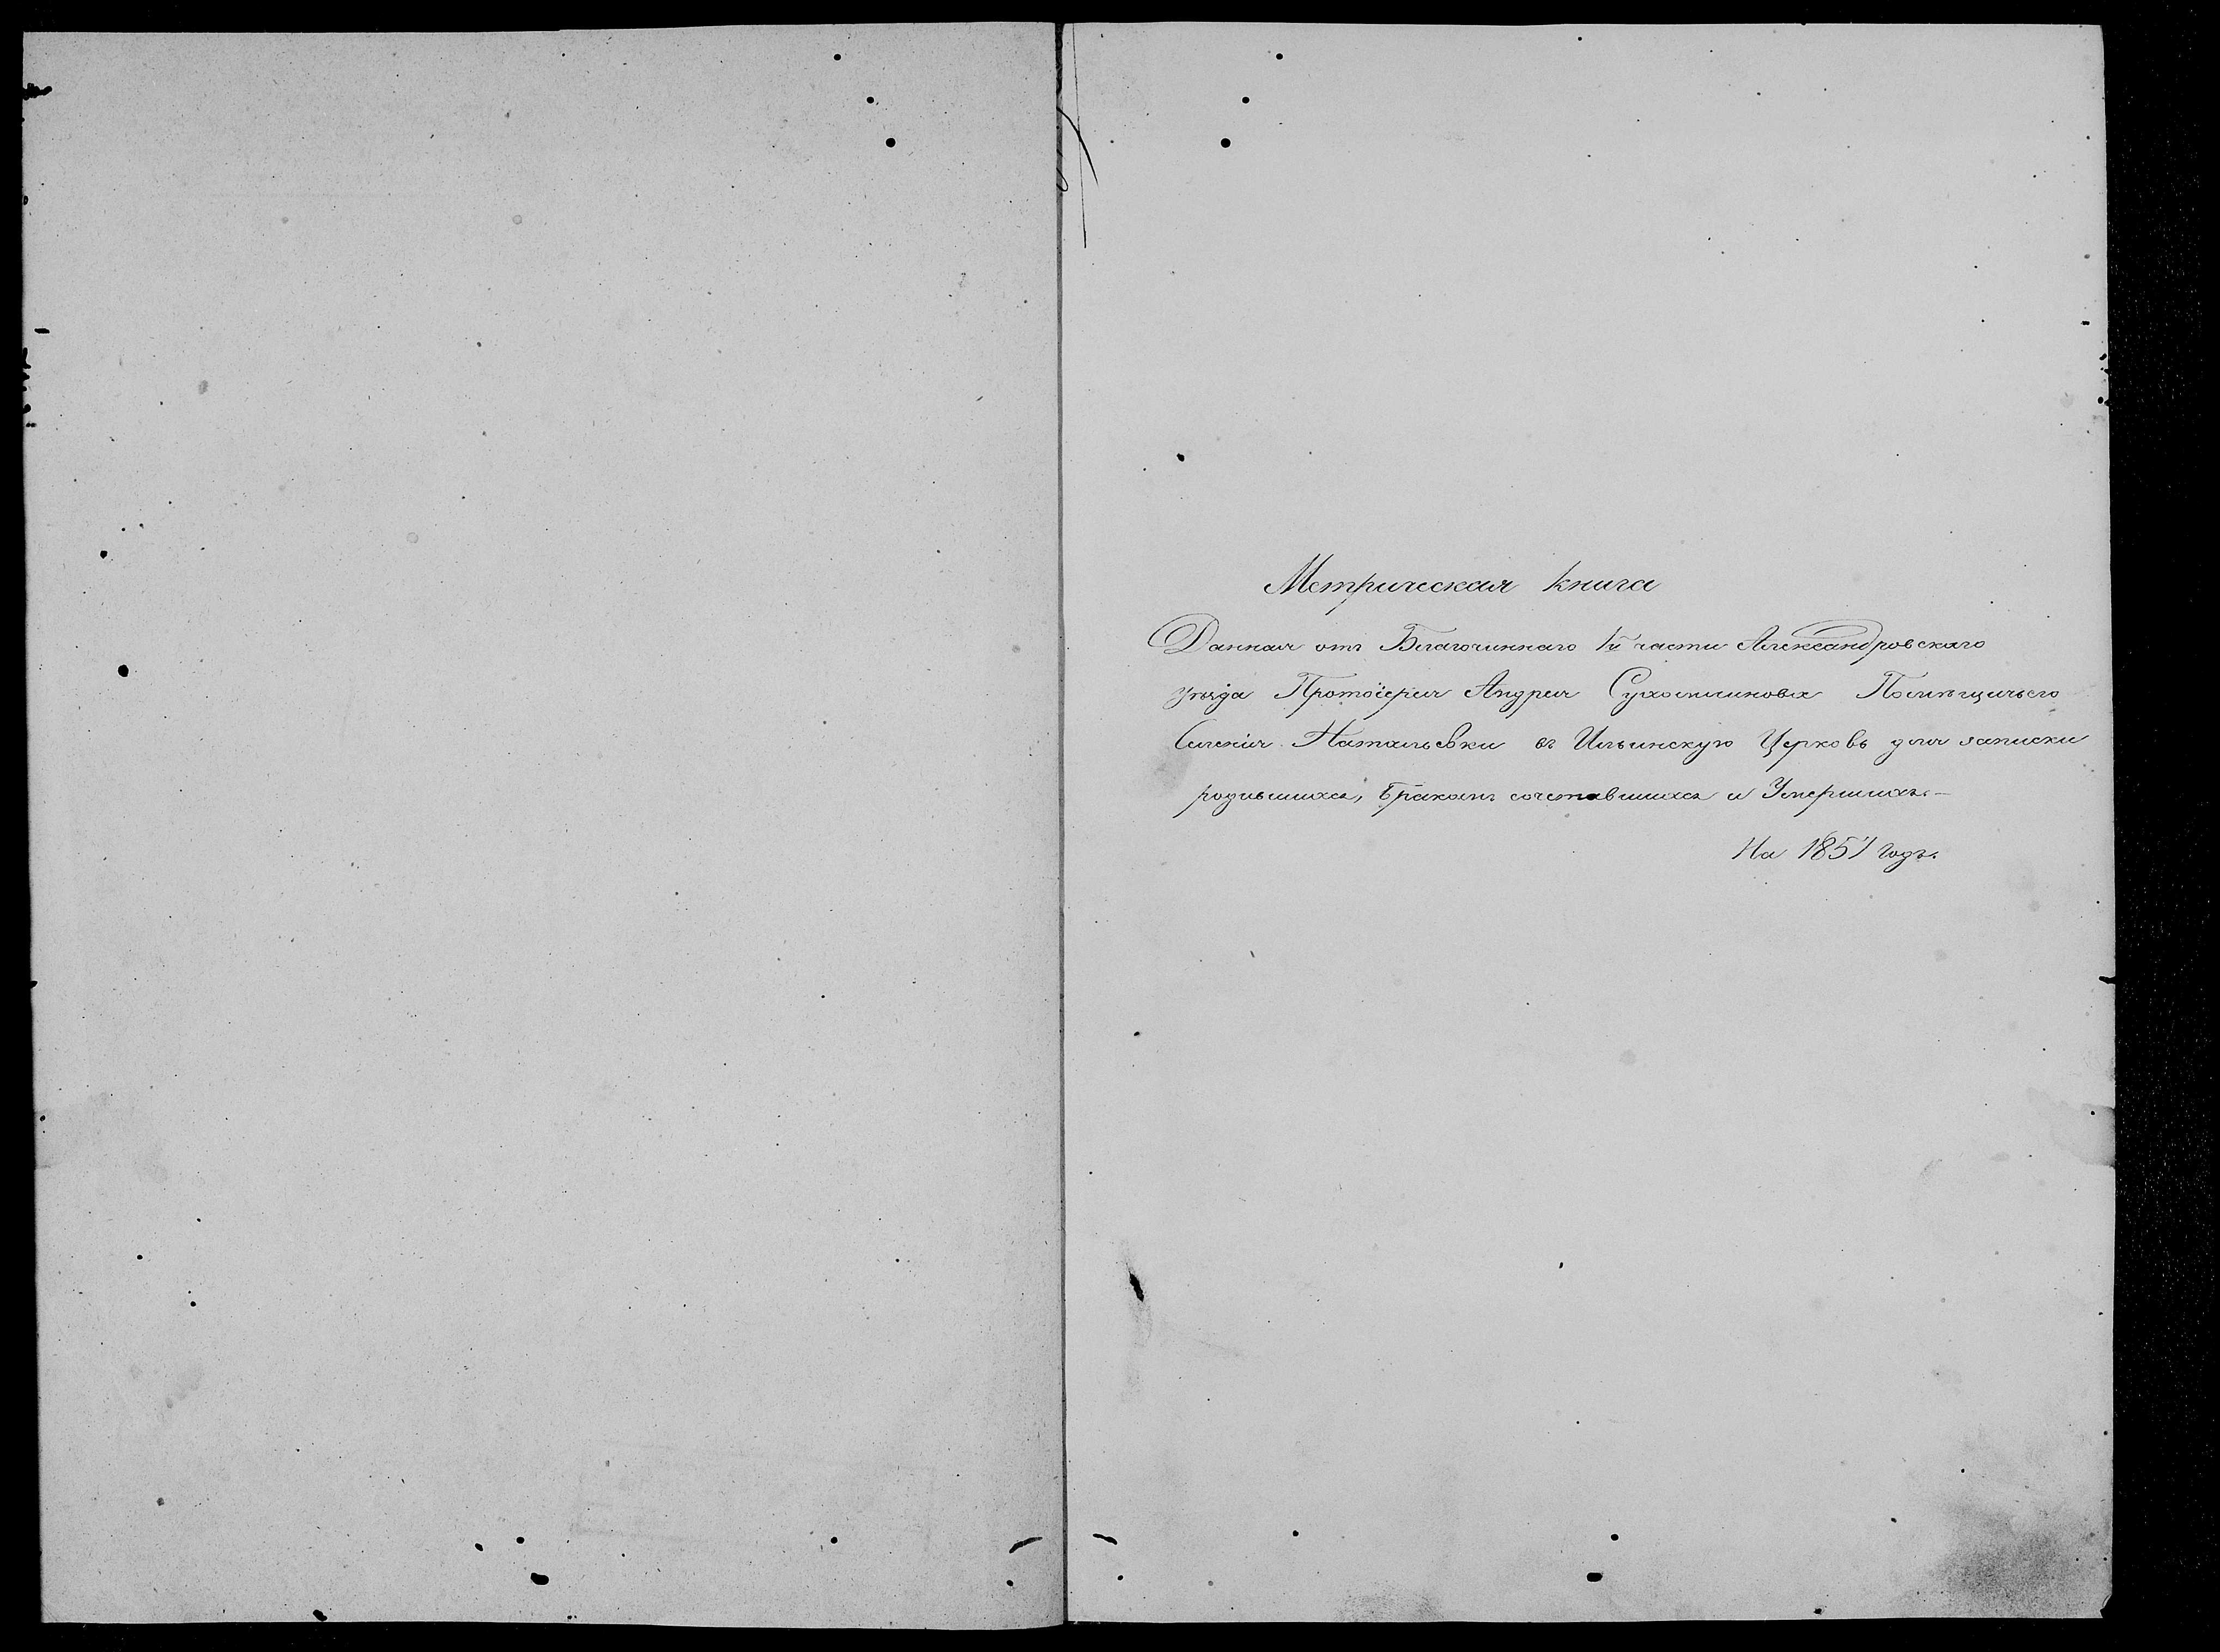 Метрическая книга
Данная отъ Благочиннаго 1й части Александровскаго
уѣзда Протоіерея Андрея Сухомлинова Помѣщичьего
Селенія Натальевки въ Ильинскую Церковь для записки
родившихся, бракомъ сочетавшихся и Умершихъ.—
На 1857 годъ.